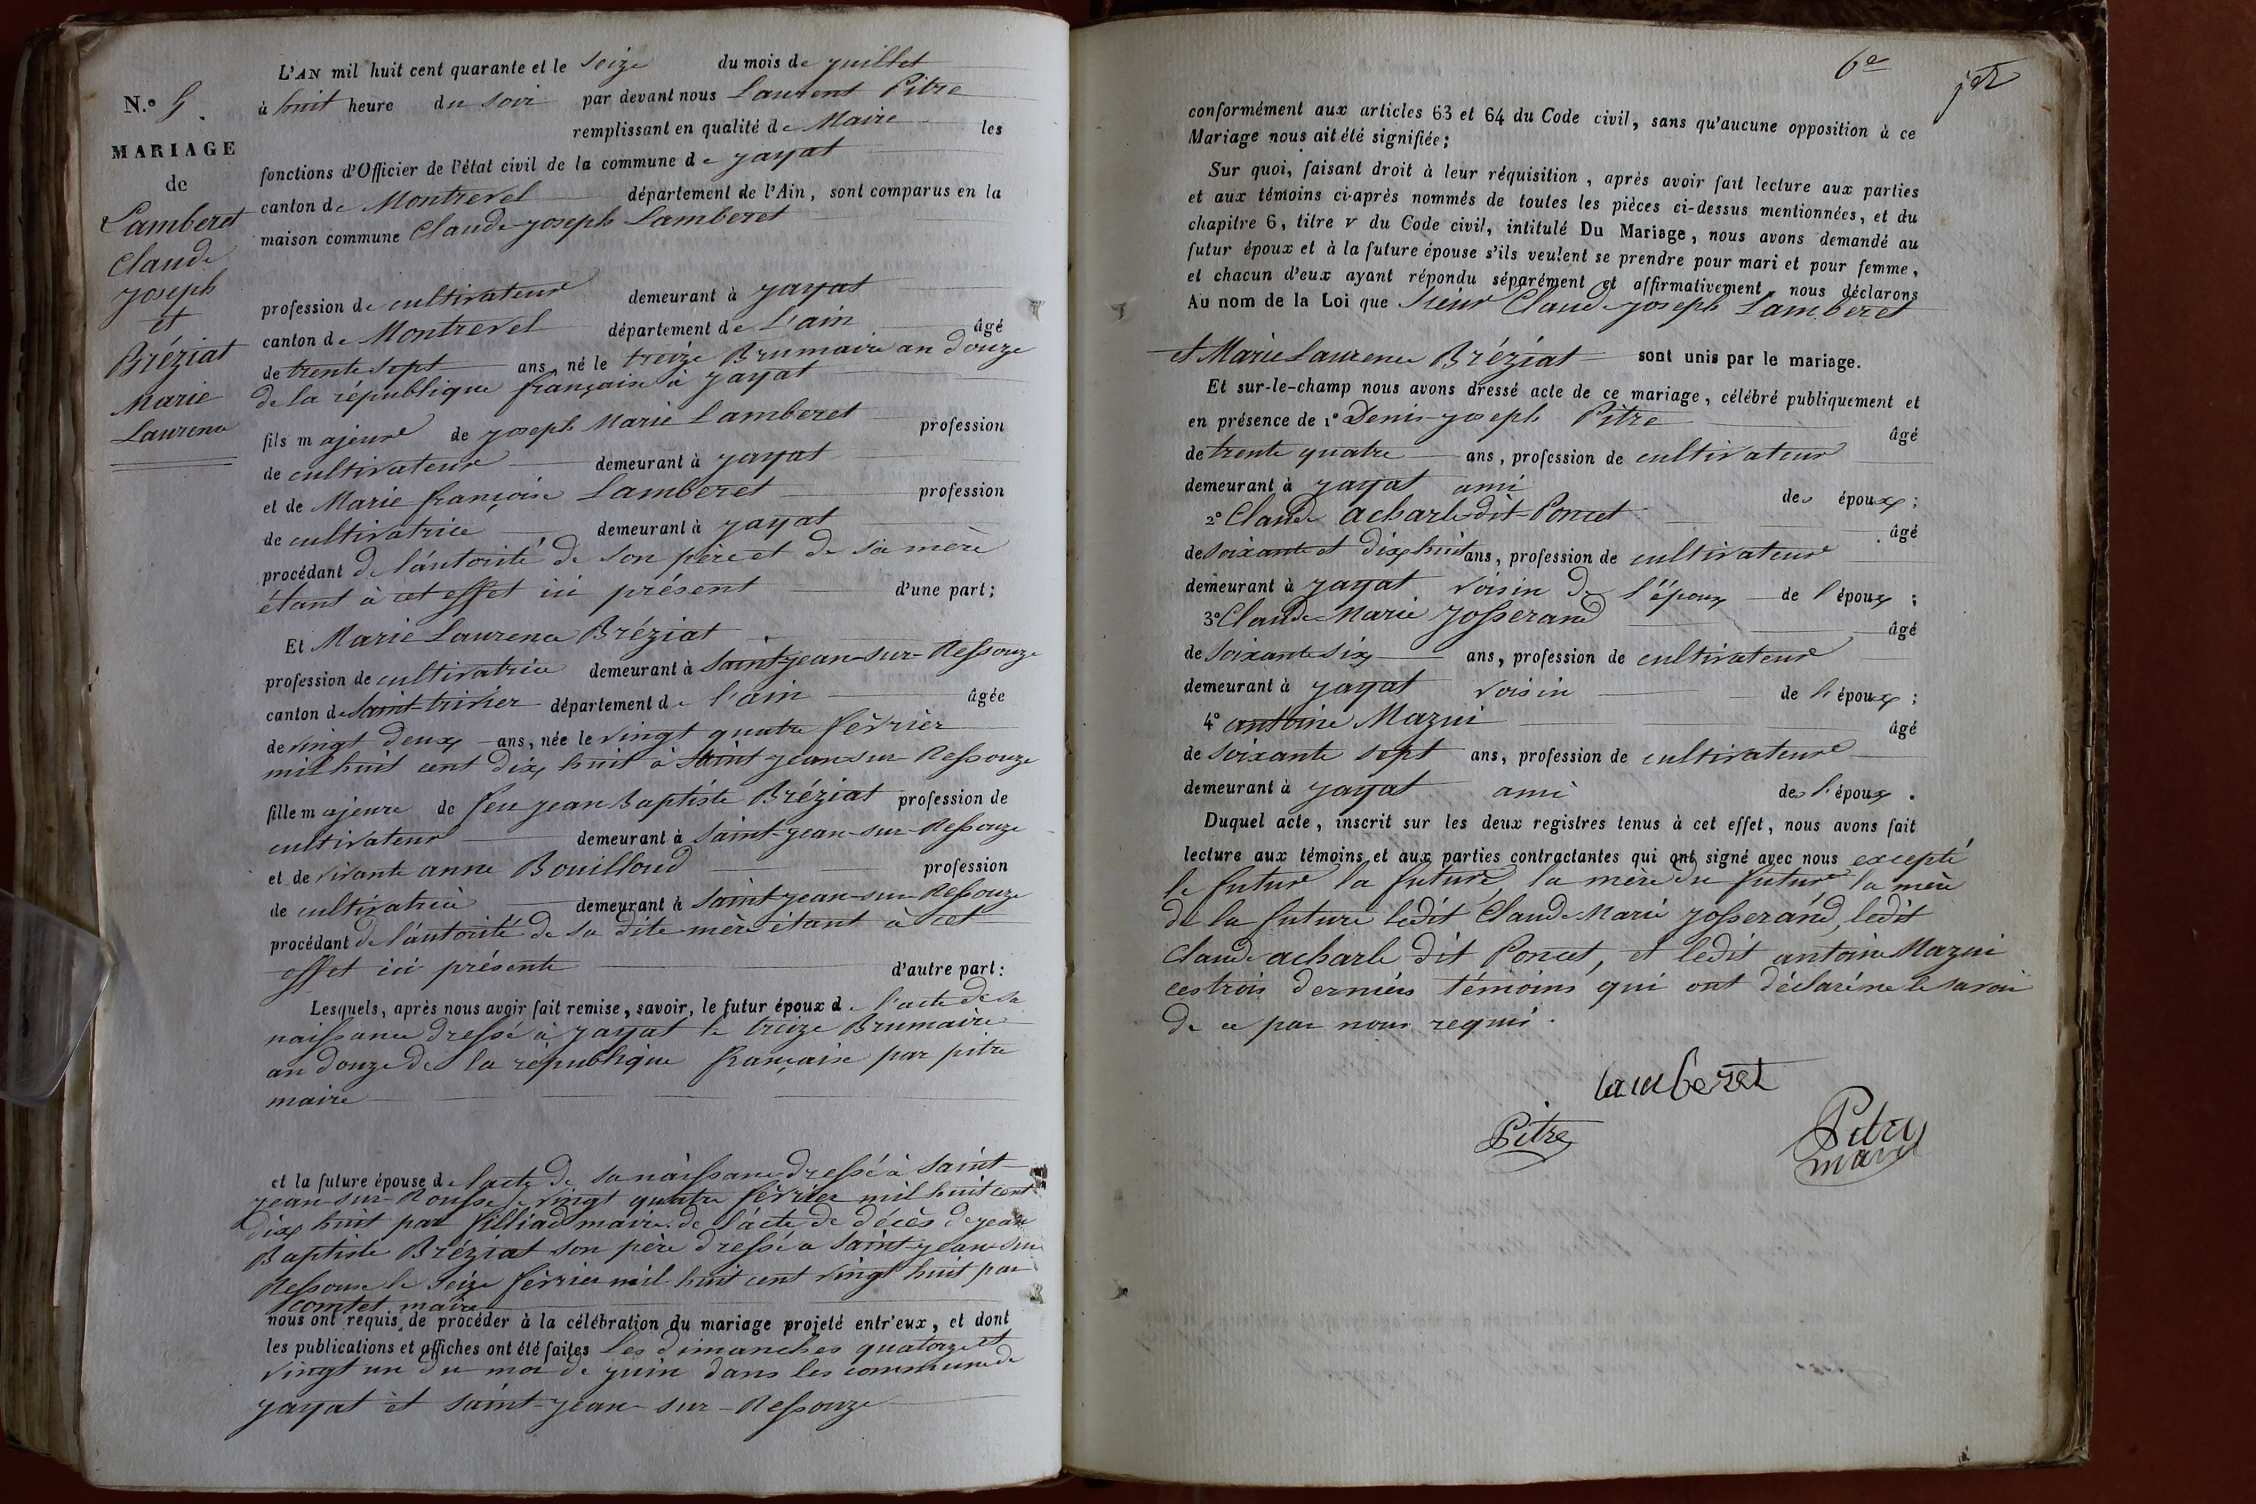 N.º 5
MARIAGE
de
Lamberet
Claude
joseph
et
Bréziat
Marie
Laurence
L'AN mil huit cent quarante et le seize du mois de juillet
à huit heure du soir par devant nous Laurent Pitre
remplissant en qualité de Maire les
fonctions d'Officier de l'état civil de la commune de jayat
canton de Montrevel département de l'Ain, sont comparus en la
maison commune Claude joseph Lamberet
profession de cultivateur demeurant à jayat
canton de Montrevel département de L'ain âgé
de trente sept ans, né le treize Brumaire an douze
de la république française à jayat
fils majeur de joseph Marie Lamberet profession
de cultivateur demeurant à jayat
et de Marie françoise Lamberet profession
de cultivatrice demeurant à jayat
procédant de l'autorité de son père et de sa mère
étant à cet effet ici présent d'une part;
Et Marie Laurence Bréziat
profession de cultivatrice demeurant à Saint-jean-sur-Ressouze
canton de Saint-trivier département de l'ain âgée
de vingt deux ans, née le vingt quatre février
mil huit cent dix huit à Saint jean sur Ressouze
fille majeure de feu jean Baptiste Bréziat profession de
cultivateur demeurant à Saint-jean-sur-Ressouze
et de vivante anne Bouilloud profession
de cultivatrice demeurant à Saint-jean-sur-Ressouze
procédant de l'autorité de sa dite mère étant à cet
effet ici présente d'autre part:
Lesquels, après nous avoir fait remise, savoir, le futur époux de l'acte de sa
naissance dressé à jayat le treize Brumaire
an douze de la république française par pitre
maire
et la future épouse de l'acte de sa naissance dressé à Saint
jean-sur-Rousse le vingt quatre février mil huit cent
dix huit par filliad maire de l'acte de décès de jean
Baptiste Bréziat son père dressé a Saint-jean-sur
Ressouse le seize février mil huit cent vingt huit par
comtet maire
nous ont requis de procéder à la célébration du mariage projeté entr'eux, et dont
les publications et affiches ont été faites les dimanches quatorze et
vingt un du moi de juin dans les commune de
jayat et Saint-jean-sur-Ressouze
6e
conformément aux articles 63 et 64 du Code civil, sans qu'aucune opposition à ce
Mariage nous ait été signifiée;
Sur quoi, faisant droit à leur réquisition, après avoir fait lecture aux parties
et aux témoins ci-après nommés de toutes les pièces ci-dessus mentionnées, et du
chapitre 6, titre v du Code civil, intitulé Du Mariage, nous avons demandé au
futur époux et à la future épouse s'ils veulent se prendre pour mari et pour femme,
et chacun d'eux ayant répondu séparément et affirmativement, nous déclarons
Au nom de la Loi que Sieur Claude joseph Lamberet
et Marie Laurence Bréziat sont unis par le mariage.
Et sur-le-champ nous avons dressé acte de ce mariage, célébré publiquement et
en présence de 1º Denis joseph Pitre âgé
de trente quatre ans, profession de cultivateur
demeurant à jayat ami des époux;
2º Claude acharle dit Poncet âgé
de soixante et dix huit ans, profession de cultivateur
demeurant à jayat voisin de l'époux de l'époux;
3º Claude Marie josserand âgé
de soixante six ans, profession de cultivateur
demeurant à jayat voisin de l'époux;
4º antoine Mazui âgé
de soixante sept ans, profession de cultivateur
demeurant à jayat ami de l'époux.
Duquel acte, inscrit sur les deux registres tenus à cet effet, nous avons fait
lecture aux témoins et aux parties contractantes qui ont signé avec nous excepté
le futur la future, la mère du futur la mère
de la future ledit Claude Marie josserand, ledit
Claude acharle dit Poncet, et ledit antoine Mazui
ces trois derniers témoins qui ont déclaré ne le savoir
de ce par nous requis.
lamberet
Pitre
Pitre
maire